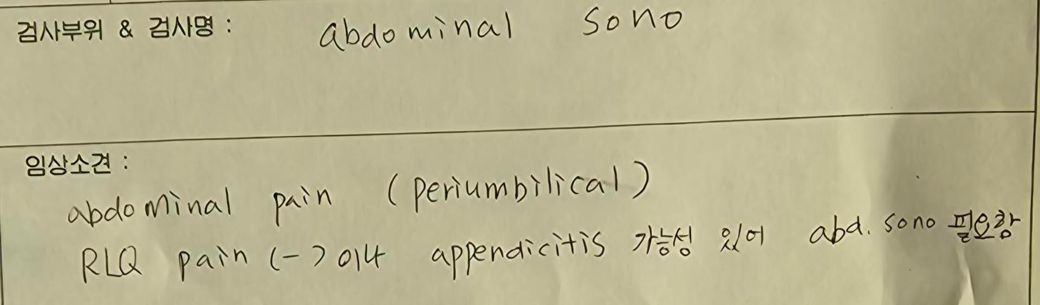 검사부위 & 검사명 : abdominal sono
임상소견 :
abdominal pain (periumbilical)
RLQ pain (-) 이나 appendicitis 가능성 있어 abd. sono 필요함